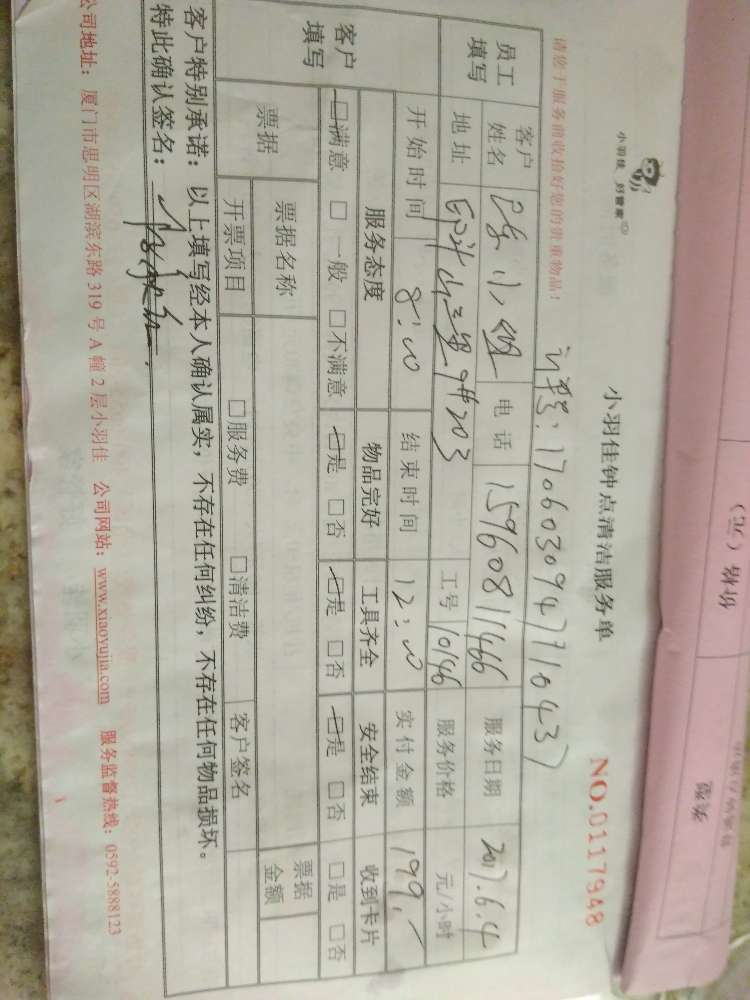 存根（記）
小羽佳 好管家
小羽佳钟点清洁服务单
NO.0117948
请您于服务前收拾好您的贵重物品！
订单号：17060309477110437
员工填写 客户姓名 陈小姐 电话 15960811466 服务日期 2017.6.4
地址 9#203 工号 10146 服务价格 元/小时
开始时间 8:00 结束时间 12:00 实付金额 199.-
客户填写 服务态度 物品完好 工具齐全 安全结束 收到卡片
☑满意 □一般 □不满意 ☑是 □否 ☑是 □否 ☑是 □否 □是 □否
票据 票据名称 票据金额
开票项目 □服务费 □清洁费 客户签名
客户特别承诺：以上填写经本人确认属实，不存在任何纠纷，不存在任何物品损坏。
特此确认签名：
公司地址：厦门市思明区湖滨东路 319 号 A 幢 2 层小羽佳 公司网站：www.xiaoyujia.com 服务监督热线：0592-5888123